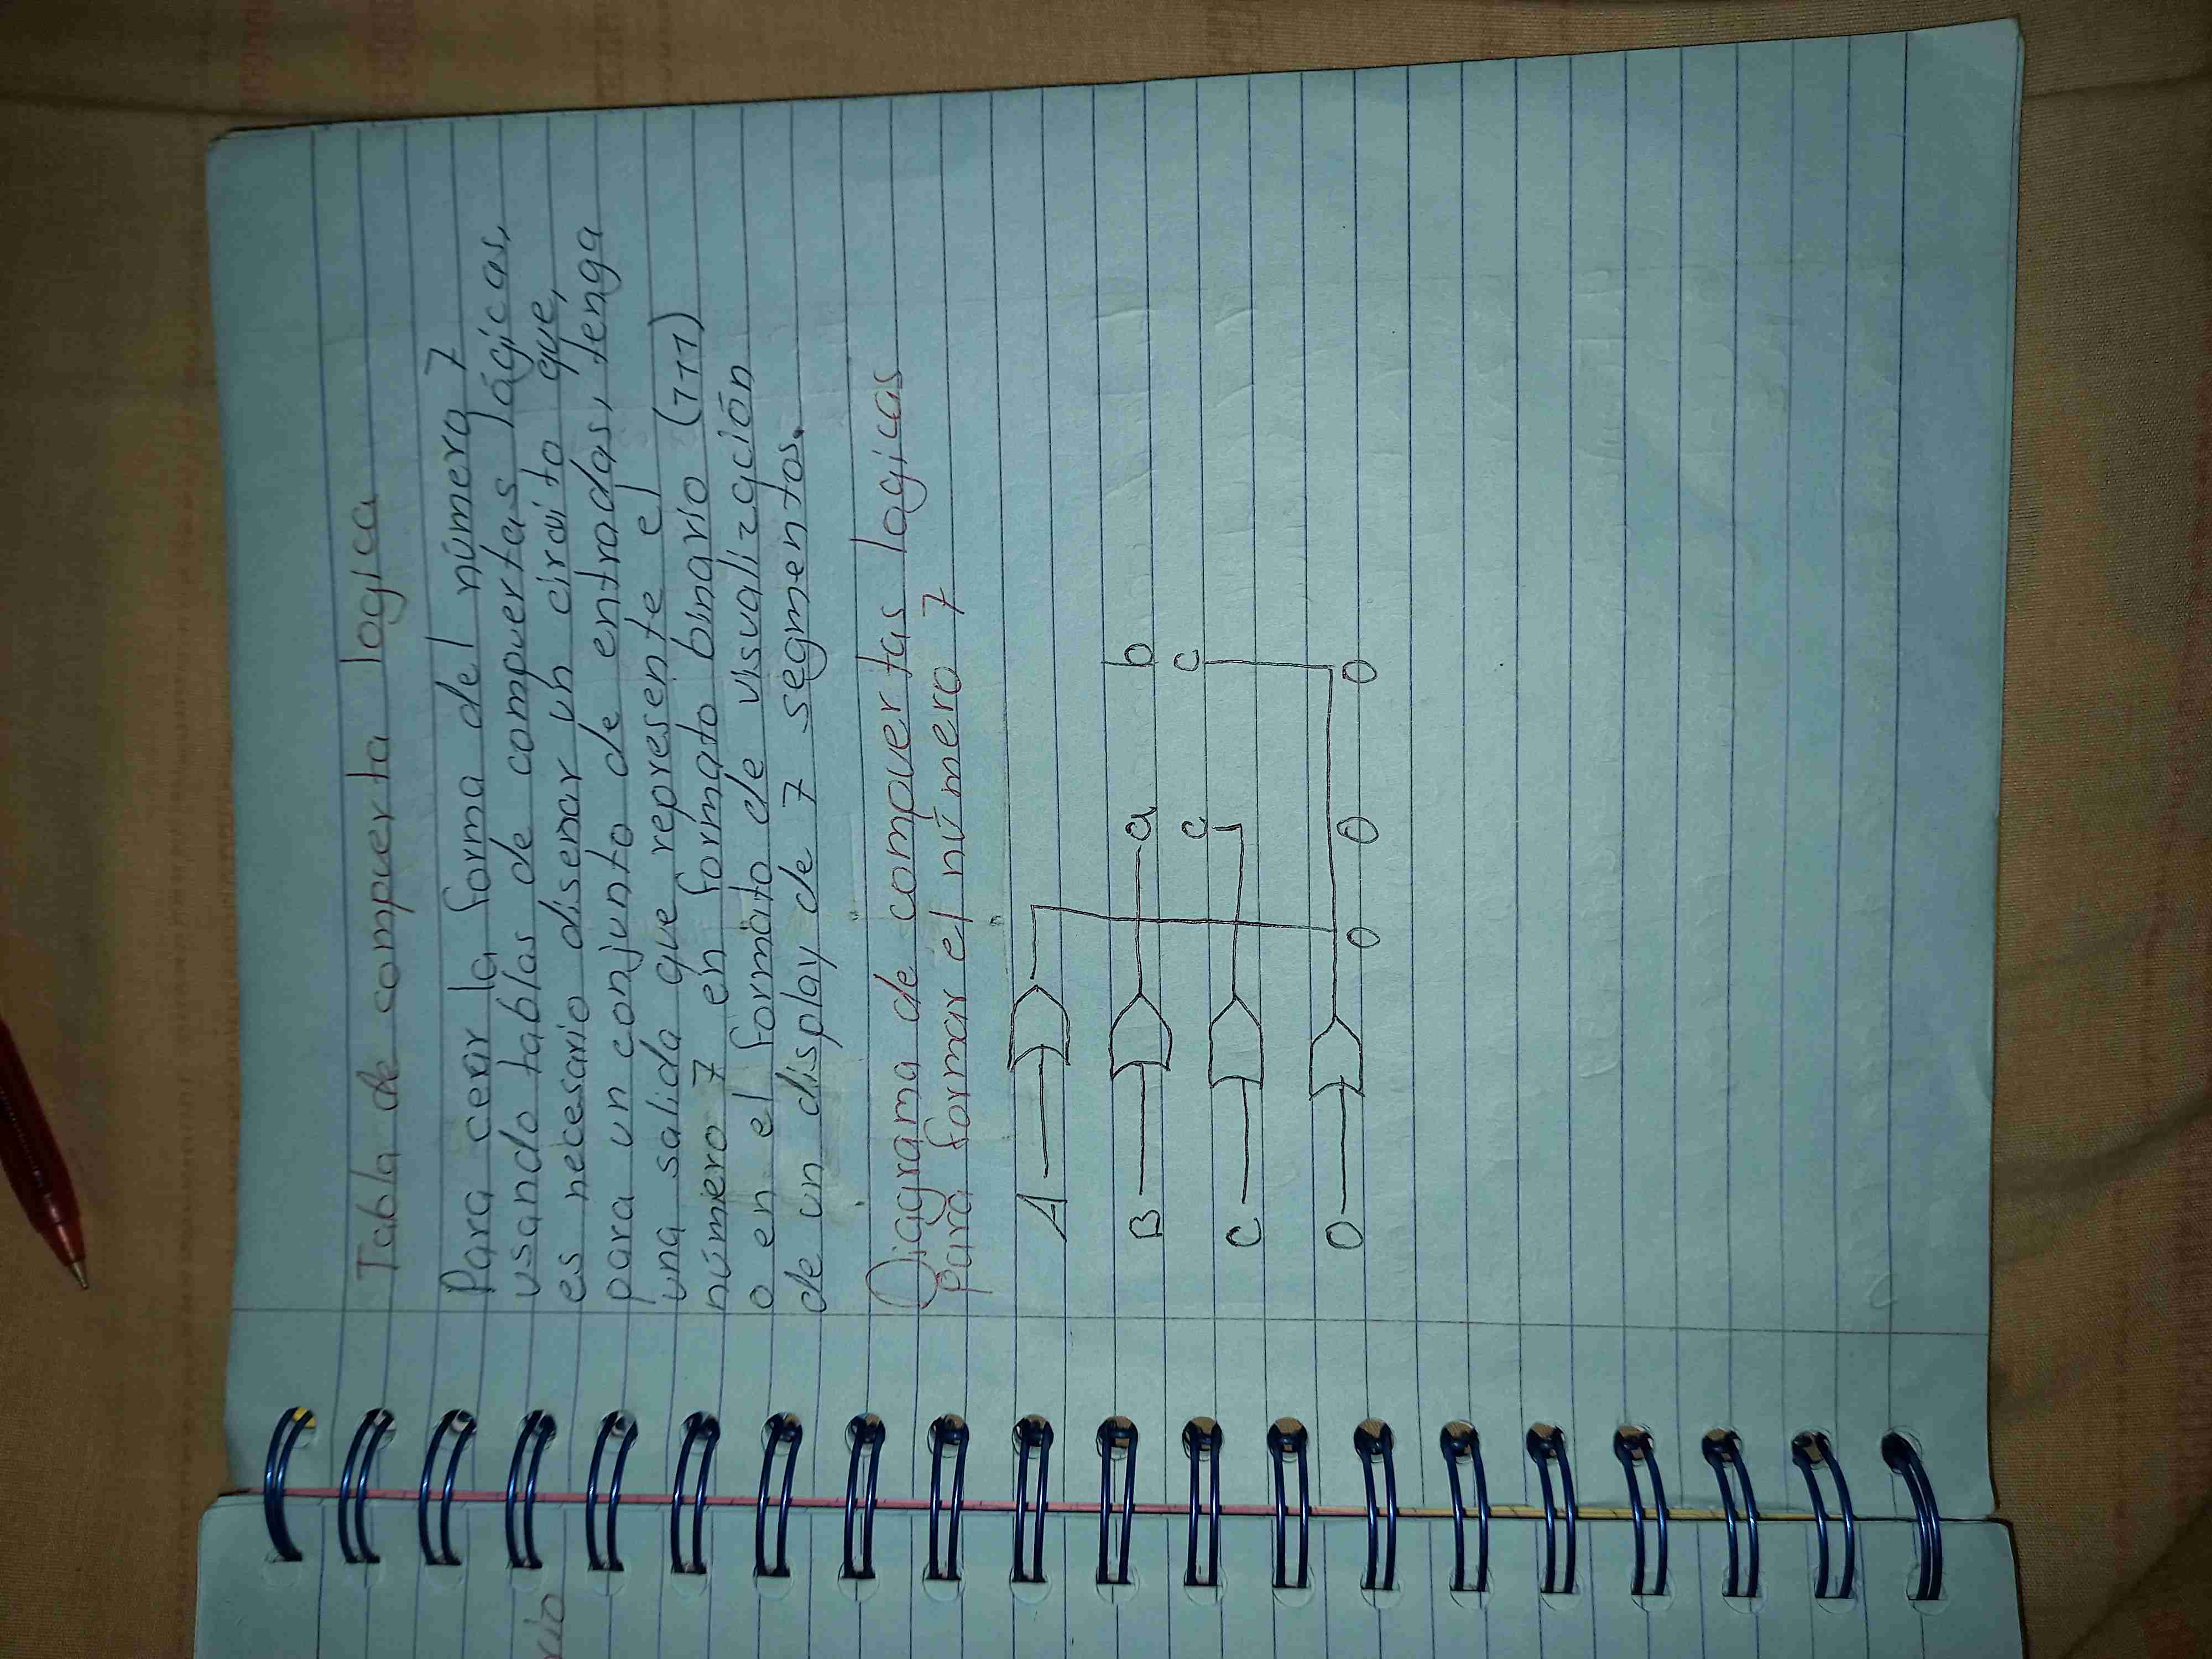 Tabla de compuerta logica
Para cear la forma del número 7
usando tablas de compuertas lógicas,
es necesario disenar un circuito que,
para un conjunto de entradas, tenga
una salida que represente el
número 7 en formato binario (111)
o en el formato de visualización
de un display de 7 segmentos.
Diagrama de compuertas logicas
para formar el número 7
A
B a b
C c c
D 0 0 0